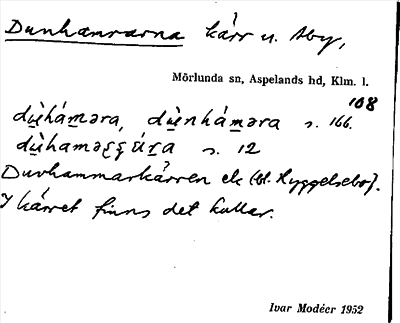 Dunhamrarna kärr u. Åby,
Mörlunda sn, Aspelands hd, Klm. l.
108
dụ̀hám̲əra, dụ̀nhám̲əra s. 166.
s. 12
Duvhammarkärren ek (bl. Hyggelsebo).
I kärret finns det kullar.
Ivar Modéer 1952